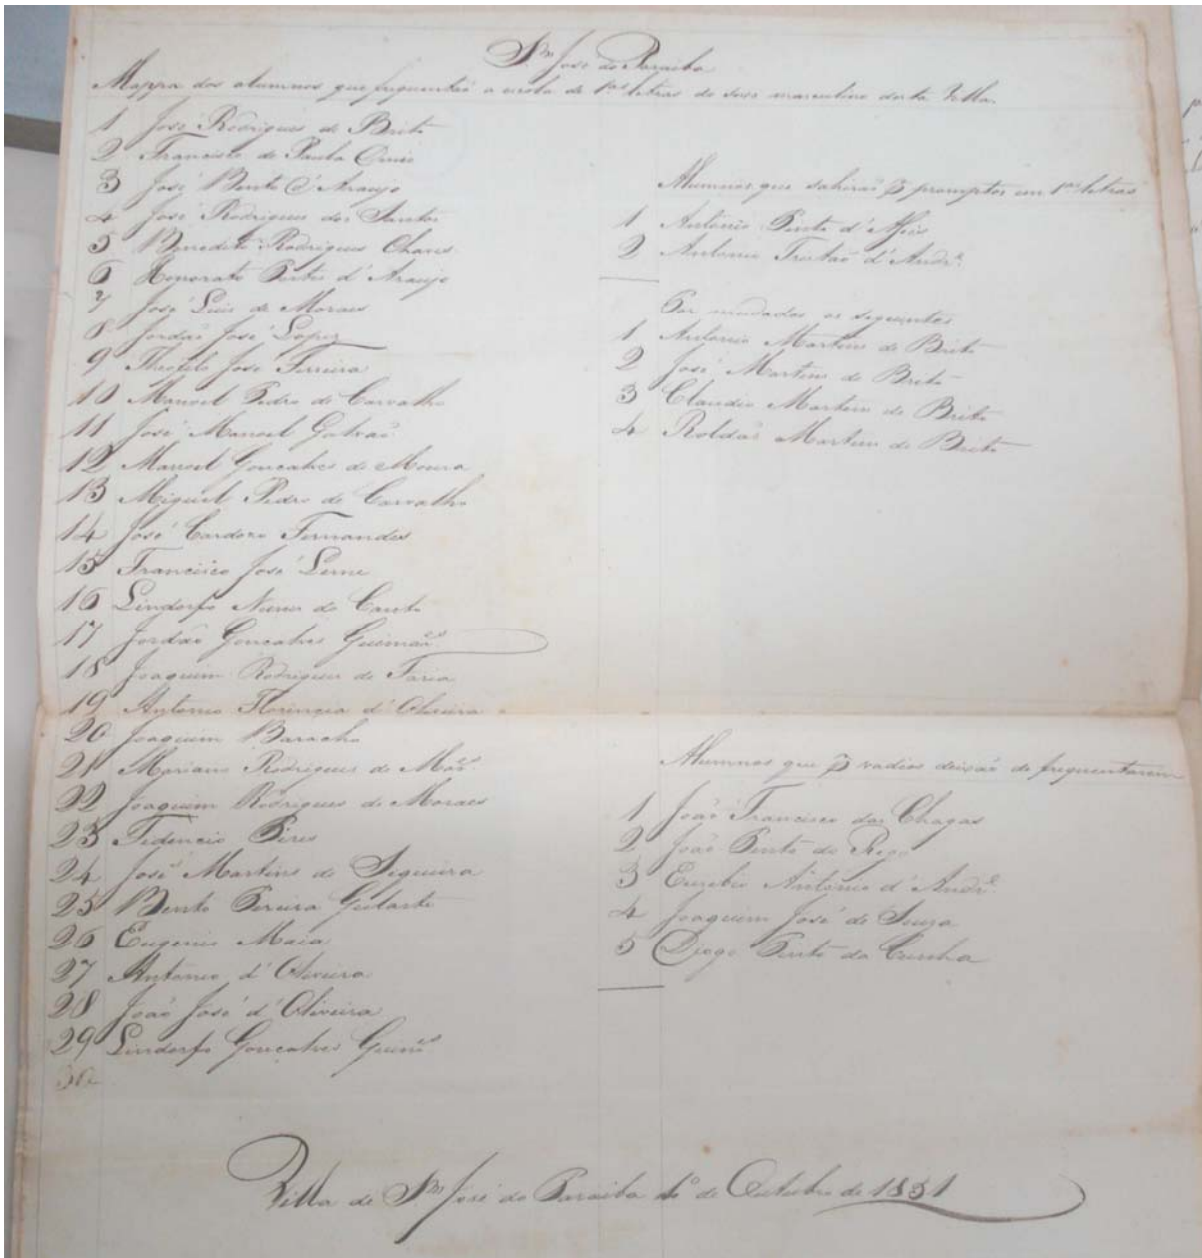 Sm José do Paraiba
Mappa dos alumnos que frequentão a escola de 1as letras do sexo masculino desta Villa.
1 José Rodrigues de Brito
2 Francisco de Paula
3 José Bento d'Araujo
4 José Rodrigues dos Santos
5 Benedito Rodrigues Chaves
6 Honorato Pinto d'Araujo
7 José Luis de Moraes
8 Jordão José Lopes
9 Theofilo José Ferreira
10 Manoel Pedro de Carvalho
11 José Manoel Galvão
12 Manoel Goncalves de Moura
13 Miguel Pedro de Carvalho
14 José Cardozo Fernandes
15 Francisco José Leme
16 Lindorfo Nunes do Canto
17 Jordão Goncalves Guimães
18 Joaquim Rodrigues de Faria
19 Antonio Florencio d'Oliveira
20 Joaquim Baracho
21 Mariano Rodrigues de
22 Joaquim Rodrigues de Moraes
23 Fidencio Pires
24 José Martins de Siqueira
25 Bento Pereira Gularte
26 Eugenio Maia
27 Antonio d'Oliveira
28 João José d'Oliveira
29 Lindorfo Goncalves
30
Alumnos que sahirão p promptos em 1as letras
1 Antonio Pinto d'
2 Antonio Tristão d'Andre
Por mudados os seguintes
1 Antonio Martins de Brito
2 José Martins de Brito
3 Claudio Martins de Brito
4 Roldão Martins de Brito
Alumnos que p vadios deixão de frequentarem
1 João Francisco das Chagas
2 João Pinto do Rego
3 Euzebio Antonio d'Andre
4 Joaquim José de Souza
5 Diogo Pinto da Cunha
Villa de Sm José do Paraiba 1o de Outubro de 1851